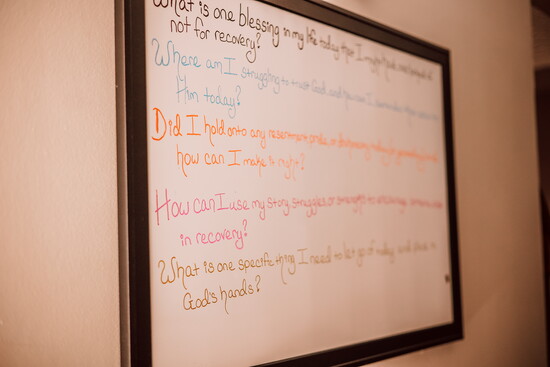 What is one blessing in my life today that I might have overlooked if
not for recovery?
Where am I struggling to trust God, and how can I surrender more to
Him today?
Did I hold onto any resentment, pride, or dishonesty today, or
how can I make it right?
How can I use my story, struggles, or strengths to encourage someone else
in recovery?
What is one specific thing I need to let go of today and place in
God's hands?